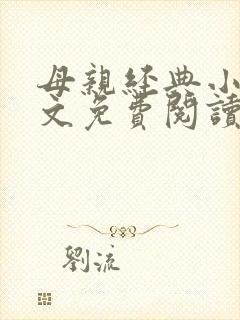 母親經典小
文免費閱讀
劉流